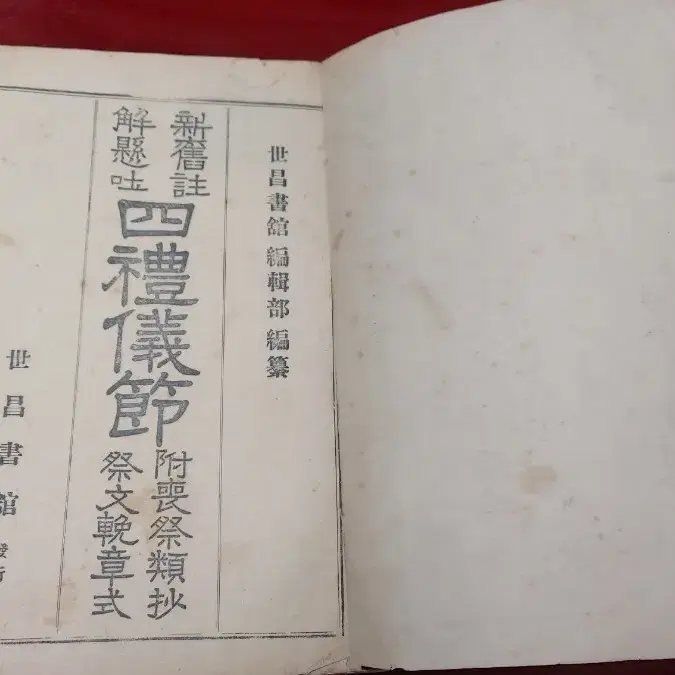 世昌書舘編輯部編纂
新舊註
解懸吐
四禮儀節
附喪祭類抄
祭文輓章式
世昌書舘發行